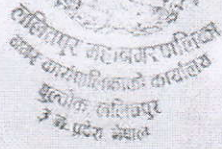 ललितपुर महानगरपालिका
नगर कार्यपालिकाको कार्यालय
पुल्चोक, ललितपुर
३ नं. प्रदेश नेपाल